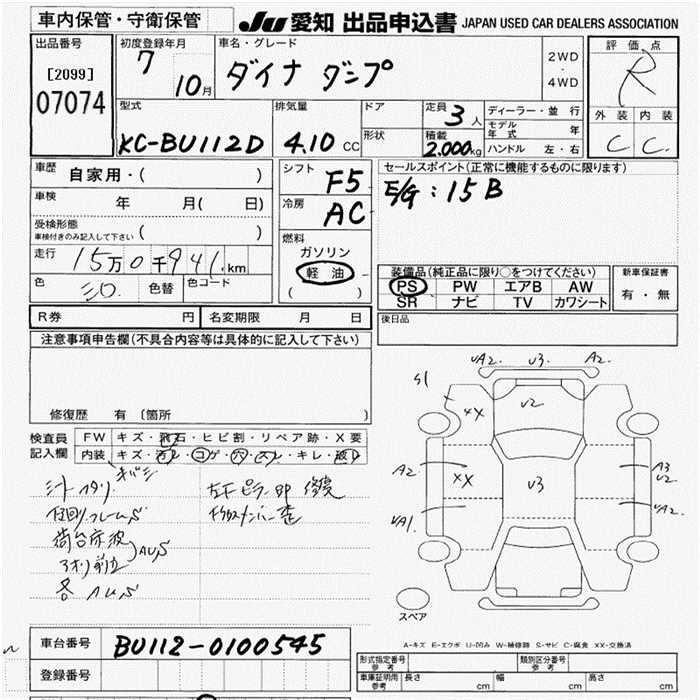 車内保管・守衛保管
JU 愛知 出品申込書 JAPAN USED CAR DEALERS ASSOCIATION
出品番号
[2099]
07074
初度登録年月
7 10月
車名・グレード
ダイナ ダンプ
2WD
・
4WD
評価点
R
外装 内装
C C
型式
KC-BU112D
排気量
4.10 CC
ドア
形状
定員 3人
積載 2.000kg
ディーラー・並行
モデル年式 年
ハンドル 左・右
車歴 自家用・( )
車検 年 月( 日)
受検形態 ( )
車検付きのみ記入して下さい
走行 15万0千941.km
色 色替 色コード
シフト F5
冷房 AC
燃料
ガソリン
軽油
( )
セールスポイント(正常に機能するものに限ります)
E/G:15B
装備品(純正品に限り○をつけてください)
PS PW エアB AW
SR ナビ TV カワシート
新車保証書
有・無
後日品
R券 円 名変期限 月 日
注意事項申告欄(不具合内容等は具体的に記入して下さい)
修復歴 有 〔箇所
検査員記入欄
FW キズ・飛石・ヒビ割・リペア跡・X要
内装 キズ・汚レ・コゲ・穴・スレ・キレ・破レ
シートヘタリ
荷台床波
AU,S
A2. V3. A2.
S1
XX V2
A2 XX V3 A3 V2
VA1. VA2.
スペア
A-キズ E-エクボ U-凹み W-補修跡 S-サビ C-腐食 XX-交換済
車台番号 BU112-0100545
登録番号
型式指定番号 参考
類別区分番号 参考
車庫証明用 参考 長さ cm 幅 cm 高さ cm